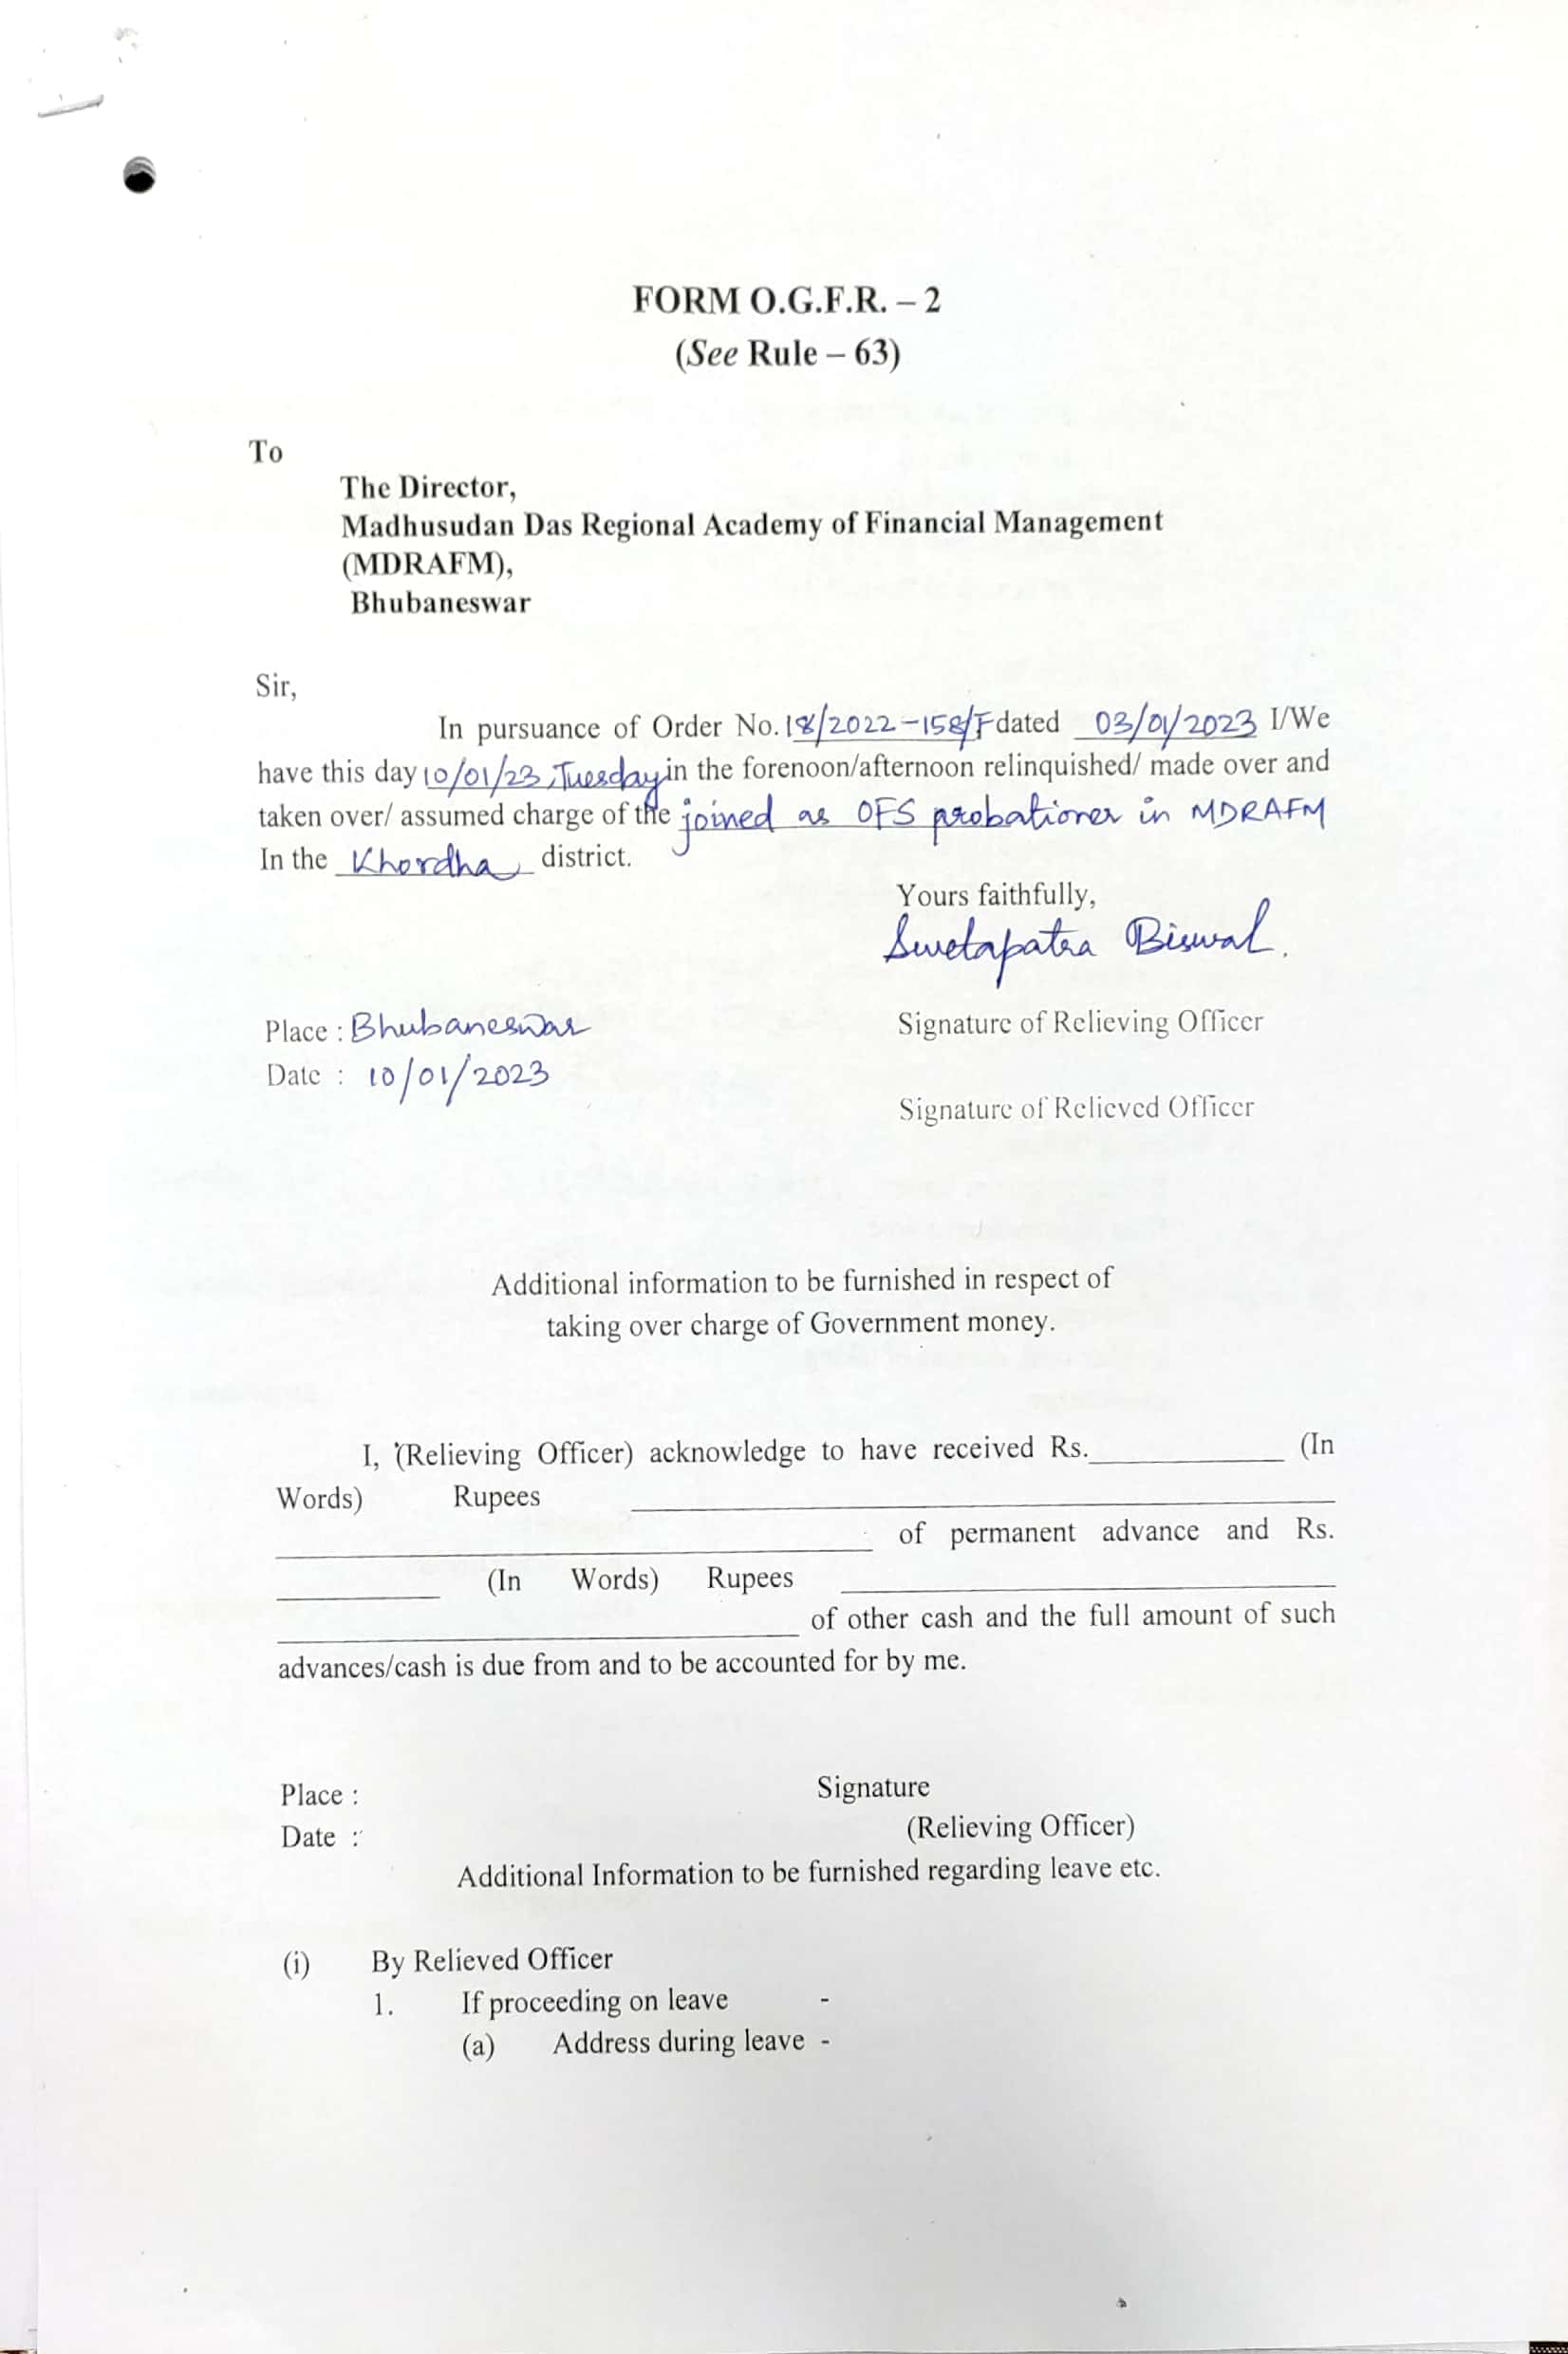 FORM O.G.F.R. – 2
(See Rule – 63)
To
The Director,
Madhusudan Das Regional Academy of Financial Management
(MDRAFM),
Bhubaneswar
Sir,
In pursuance of Order No. 18/2022-158/F dated 03/01/2023 I/We
have this day 10/01/23, Tuesday in the forenoon/afternoon relinquished/ made over and
taken over/ assumed charge of the joined as OFS probationer in MDRAFM
In the Khordha district.
Yours faithfully,
Swetapatra Biswal.
Place : Bhubaneswar
Signature of Relieving Officer
Date : 10/01/2023
Signature of Relieved Officer
Additional information to be furnished in respect of
taking over charge of Government money.
I, (Relieving Officer) acknowledge to have received Rs.____________ (In
Words) Rupees ____________
____________ of permanent advance and Rs.
____________ (In Words) Rupees ____________
____________ of other cash and the full amount of such
advances/cash is due from and to be accounted for by me.
Place : Signature
Date : (Relieving Officer)
Additional Information to be furnished regarding leave etc.
(i) By Relieved Officer
1. If proceeding on leave -
(a) Address during leave -